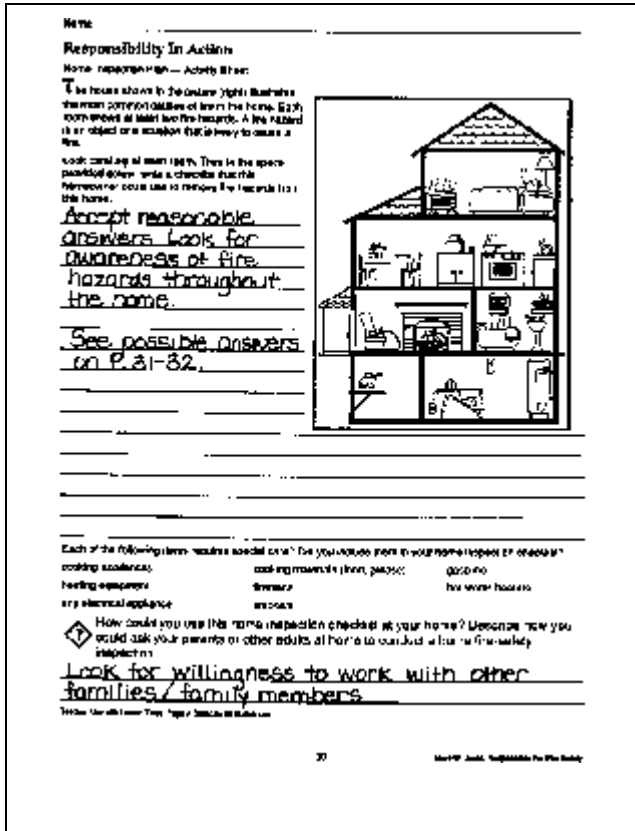 Name
Responsibility In Action
Home Inspection Plan — Activity Sheet
The house shown in the picture (right) illustrates
the most common causes of fires in the home. Each
room shows at least two fire hazards. A fire hazard
is an object or a situation that is likely to cause a
fire.
Look carefully at each room. Then in the space
provided below, write a checklist that this
homeowner could use to remove fire hazards from
this home.
Accept reasonable
answers. Look for
awareness of fire
hazards throughout
the home.
See possible answers
on P. 31-32.
Each of the following items requires special care. Did you include them in your home inspection checklist?
cooking appliances
cooking materials (food, grease)
gasoline
heating equipment
hot water heaters
any electrical appliance
How could you use this home inspection checklist at your home? Describe how you
could ask your parents or other adults at home to conduct a home fire-safety
inspection.
Look for willingness to work with other
families/family members